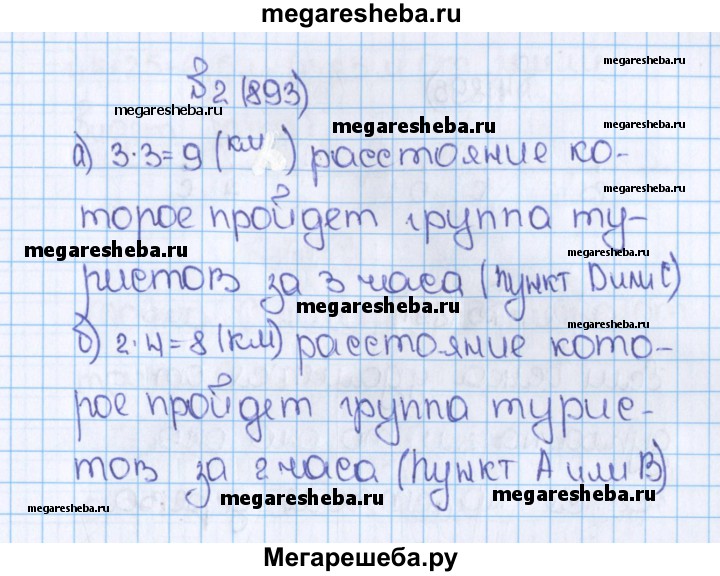 megaresheba.ru
megaresheba.ru
№2 (893)
megaresheba.ru
megaresheba.ru
а) 3·3=9 (км) расстояние ко-
торое пройдет группа ту-
megaresheba.ru
megaresheba.ru
ристов за 3 часа (пункт D или С)
megaresheba.ru
б) 2·4=8 (км) расстояние кото-
рое пройдет группа турис-
тов за 2 часа (пункт А или В)
megaresheba.ru
megaresheba.ru
megaresheba.ru
Мегарешеба.ру